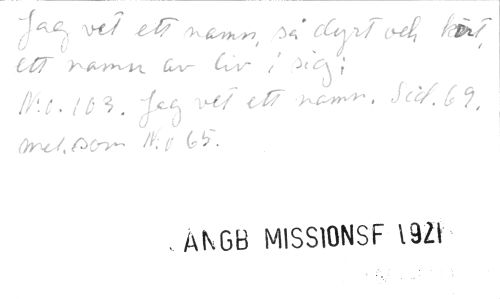 Jag vet ett namn, så dyrt och kärt,
ett namn av liv i sig;
N:o. 103. Jag vet ett namn. Sid. 69.
mel. som N:o 65.
ANGB MISSIONSF 1921